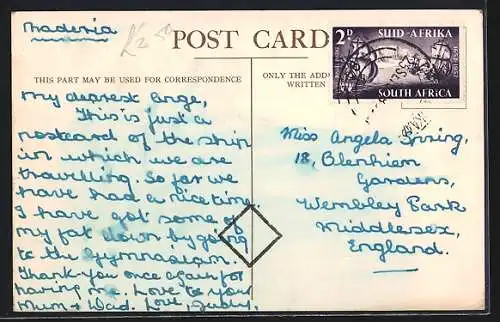 Madeira
£2.50
POST CARD
THIS PART MAY BE USED FOR CORRESPONDENCE
ONLY THE ADD
WRITTEN
2D SUID-AFRIKA
1652-1952
SOUTH AFRICA
My dearest Ange,
This is just a
postcard of the ship
in which we are
travelling. So far we
have had a nice time.
I have got some of
my fat down by going
to the gymnasium.
Thank-you once again for
having me. Love to your
Mum + Dad. Love, Judy.
Miss Angela Irving,
18, Blenheim
Gardens,
Wembley Park
Middlesex,
England.